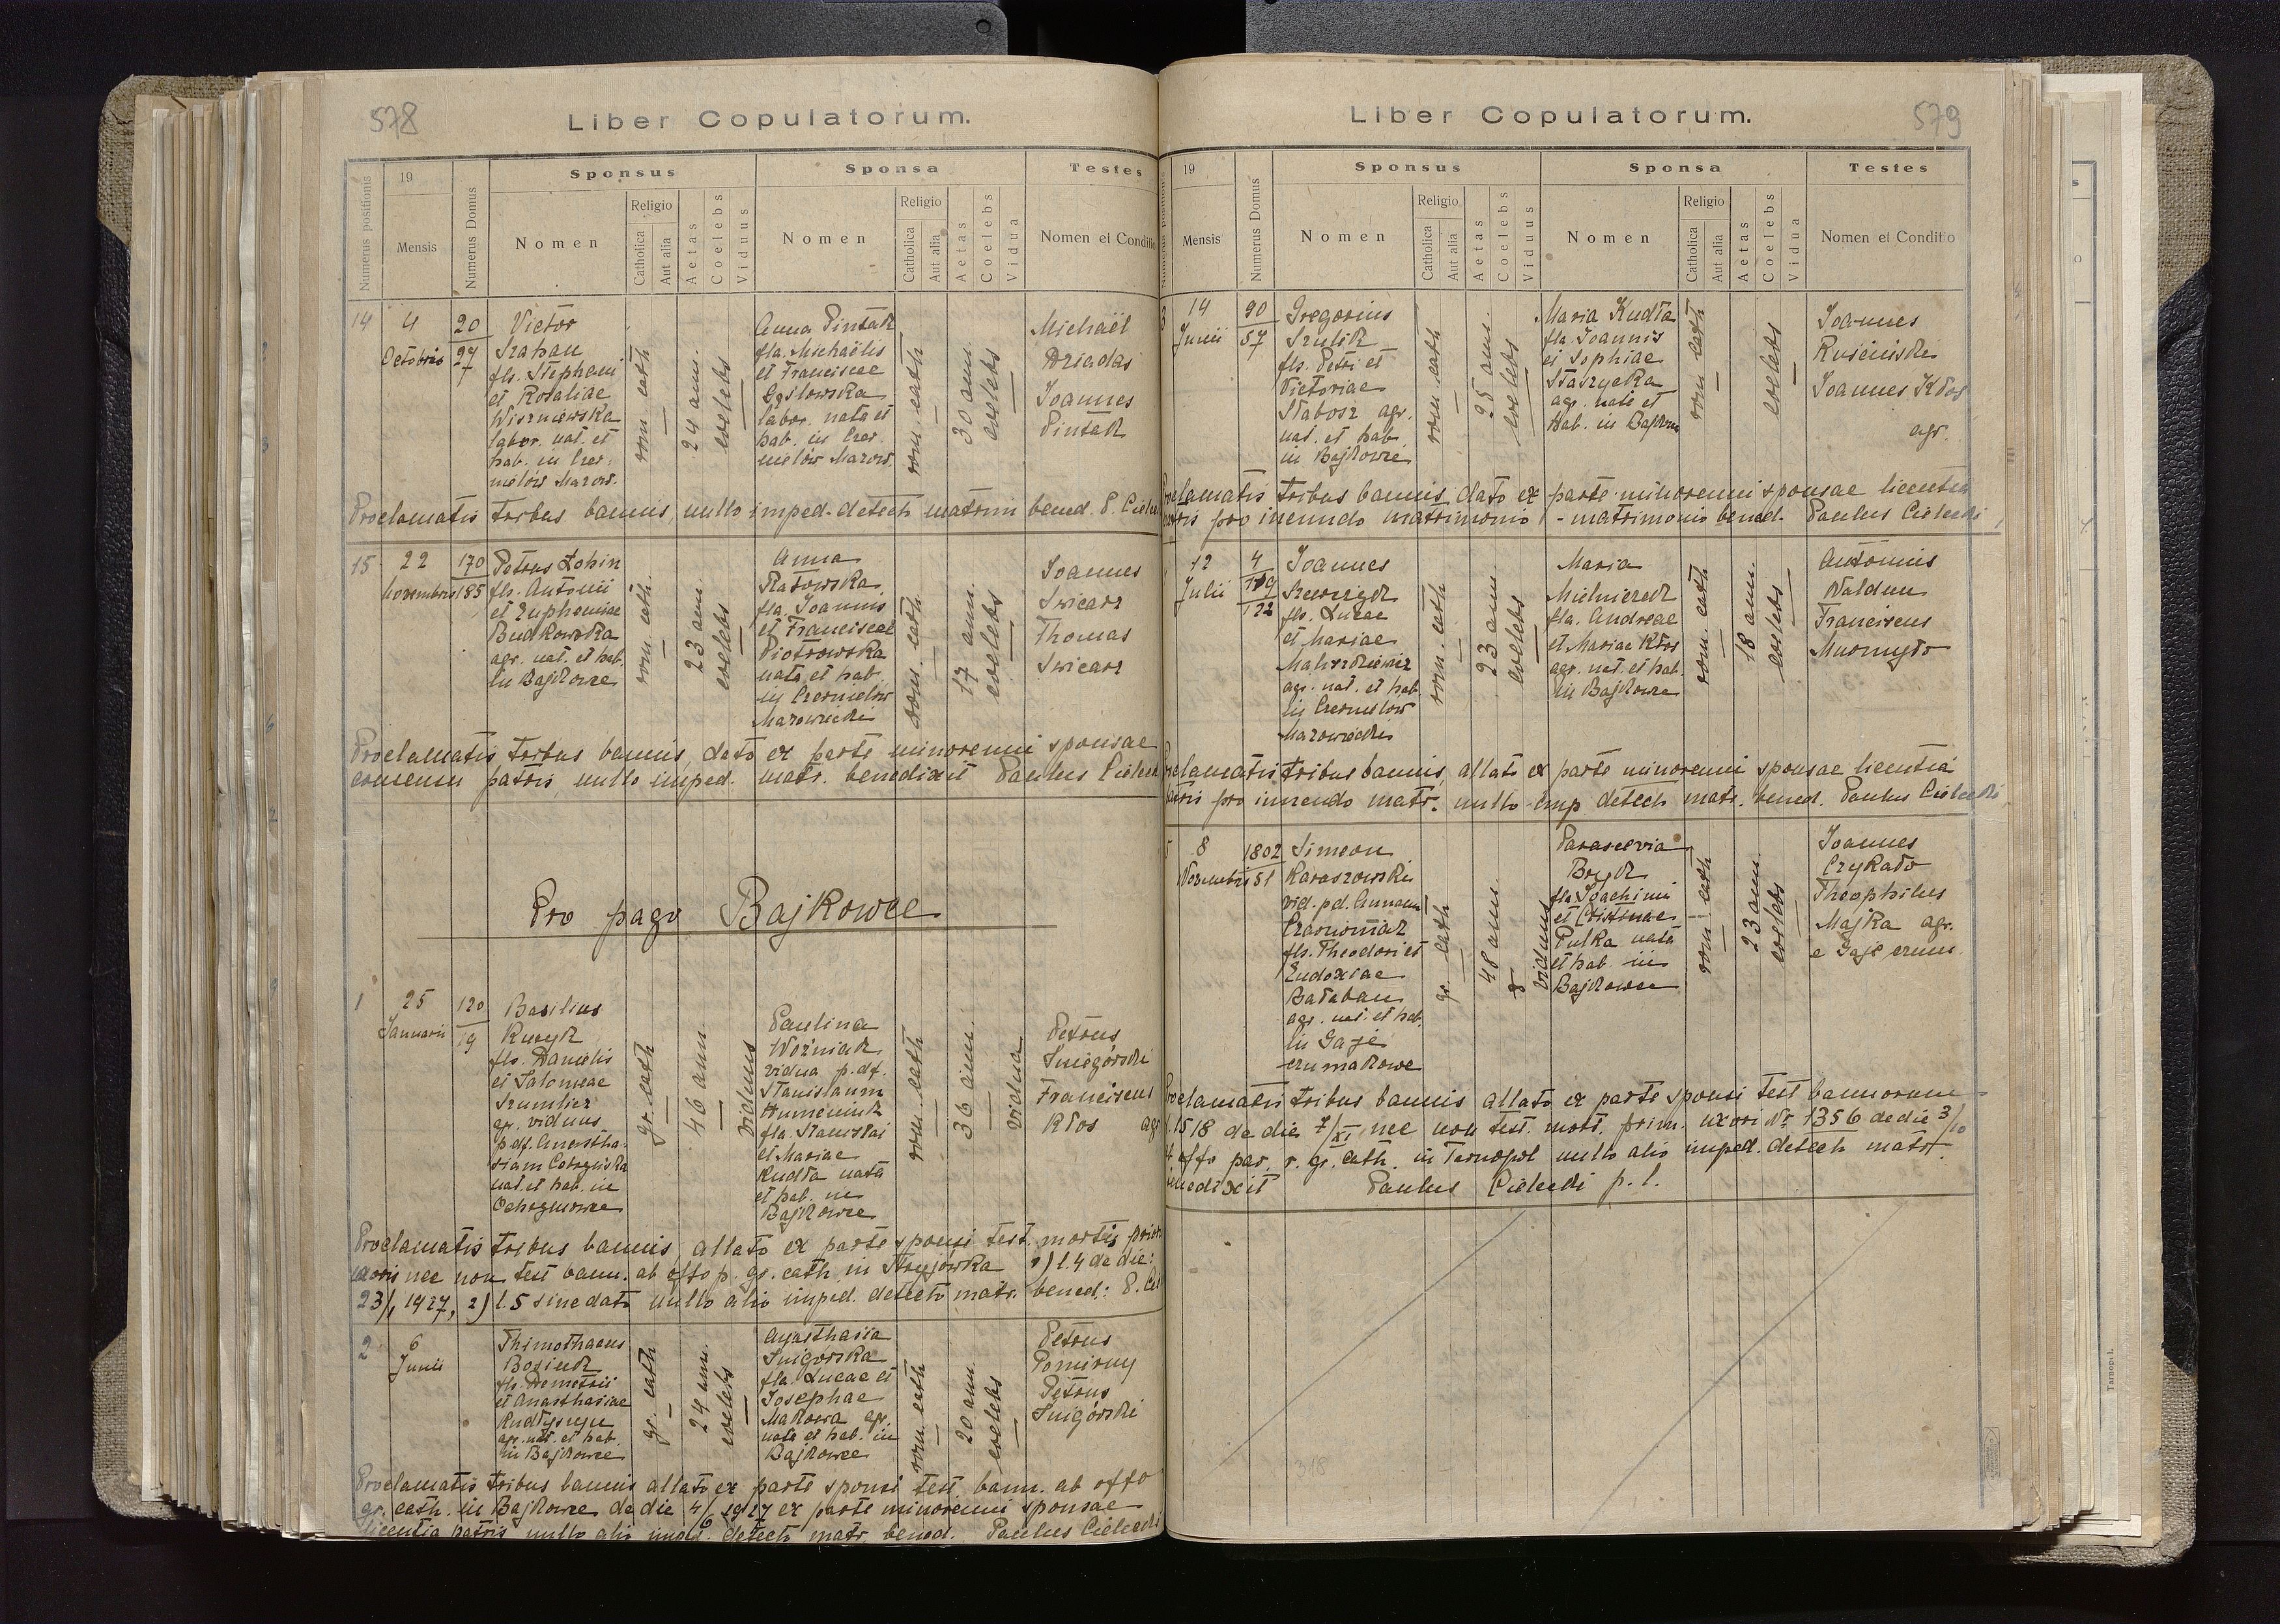 578
Liber Copulatorum.
Numerus positionis
19
Mensis
Numerus Domus
Sponsus
Nomen
Religio
Catholica
Aut alia
Aetas
Coelebs
Viduus
Sponsa
Nomen
Religio
Catholica
Aut alia
Aetas
Coelebs
Vidua
Testes
Nomen et Conditio
14
4
Octobris
20
27
Victor
Szaban
fls. Stephani
et Rosaliae
Wiszniewska
labor. nat. et
hab. in Czer-
nielów Mazow.
rom. cath
24 ann.
coelebs
Anna Pintak
fla. Michaëlis
et Franciscae
labor. nata et
hab. in Czer-
nielów Mazow.
rom. cath
30 ann.
coelebs
Michaël
Dziadas
Joannes
Pintak
Proclamatis tribus bannis, nullo imped. detecto matrim bened. P.
15
22
Novembris
170
185
Petrus Łobin
fls. Antonii
et Euphemiae
Budkowska
agr. nat. et hab.
in Bajkowce
rom. cath.
23 ann.
coelebs
Anna
Ratowska
fla. Joannis
et Franciscae
Piotrowska
nata et hab.
in Czernielów
Mazowiecki
rom. cath
17 ann.
coelebs
Joannes
Swicarz
Thomas
Swicarz
Proclamatis tribus bannis, dato ex parte minorenni sponsae
consensu patris, nullo imped. matr. benedixit Paulus
Pro pago Bajkowce
1
25
Januarii
120
19
Basilius
Kuzyk
fls. Danielis
et Salomeae
agr. viduus
p. df. Anastha-
siam
nat. et hab. in
gr. cath
46 ann
viduus
Paulina
Woźniak
vidua p. df.
Stanislaum
Humeniuk
fla. Stanislai
et Mariae
Kudła nata
et hab. in
Bajkowce
rom. cath
36 ann.
vidua
Petrus
Śniegórski
Franciscus
Kłos agr
Proclamatis tribus bannis, allato ex parte sponsi test. mortis prior
uxoris nec non test bann. ab offo p. gr. cath. in Stryjówka 1) l. 4 de die:
23/1 1927, 2) l. 5 sine dato nullo alio imped. detecto matr. bened: P.
2
6
Junii
Thimothaeus
Boziuk
fls. Demetrii
et Anasthasiae
agr. nat. et hab.
in Bajkowce
gr. cath
24 ann.
coelebs
Anasthasia
Śnigorska
fla. Lucae et
Josephae
Makowa agr.
nata et hab. in
Bajkowce
rom. cath
20 ann
coelebs
Petrus
Pomirny
Petrus
Śnigórski
Proclamatis tribus bannis allato ex parte sponsi test. bann. ab offo
gr. cath. in Bajkowce de die 4/6 1927 ex parte minorenni sponsae
licentia patris nullo alio imped. detecto matr. bened. Paulus Cielecki
579
Liber Copulatorum.
Numerus positionis
19
Mensis
Numerus Domus
Sponsus
Nomen
Religio
Catholica
Aut alia
Aetas
Coelebs
Viduus
Sponsa
Nomen
Religio
Catholica
Aut alia
Aetas
Coelebs
Vidua
Testes
Nomen et Conditio
3
14
Junii
90
57
Gregorius
Szulik
fls. Petri et
Victoriae
Stabosz agr.
nat. et hab.
in Bajkowce
rom. cath
25 ann.
coelebs
Maria Kudła
fla. Joannis
et Sophiae
Staszycka
agr. nata et
hab. in Bajkowce
rom. cath
coelebs
Joannes
Rusiniski
Joannes Kłos
agr.
Proclamatis tribus bannis, dato ex parte minorenni sponsae licentia
patris pro ineundo matrimonio - matrimonio bened. Paulus Cielecki
12
Julii
4
119
122
Joannes
Szewczyk
fls. Lucae
et Mariae
agr. nat. et hab.
in Czernielow
Mazowiecki
rom. cath
23 ann.
coelebs
Maria
Mielniczek
fla. Andreae
et Mariae Kłos
agr. nat. et hab.
in Bajkowce
rom. cath
18 ann.
coelebs
Antonius
Waldun
Franciscus
Muomyto
Proclamatis tribus bannis, allato ex parte minorenni sponsae licentia
patris pro ineundo matr. nullo imp detecto matr. bened. Paulus Cielecki
5
8
Novembris
1802
51
Simeon
Karaszowski
vid. p d. Annam
fls. Theodori et
Eudoxiae
Bałaban
agr. nat. et hab.
in Gaje
czumakowe
gr. cath
48 ann.
viduus
Parascevia
Bryk
fla. Joachimi
et Christinae
Pułka nata
et hab. in
Bajkowce
rom. cath
23 ann.
coelebs
Joannes
Czykało
Theophilus
Majka agr.
e Gaje czum.
Proclamatis tribus bannis allato ex parte sponsi test bannorum
l. 1518 de die 7/XI nec non test. mort. prim. uxori Nr 1356 de die 3/10
ab offo par. r. gr. cath. in Tarnopol nullo alio imped. detecto matr.
benedixit Paulus Cielecki p. l.
318
Tarnopol.